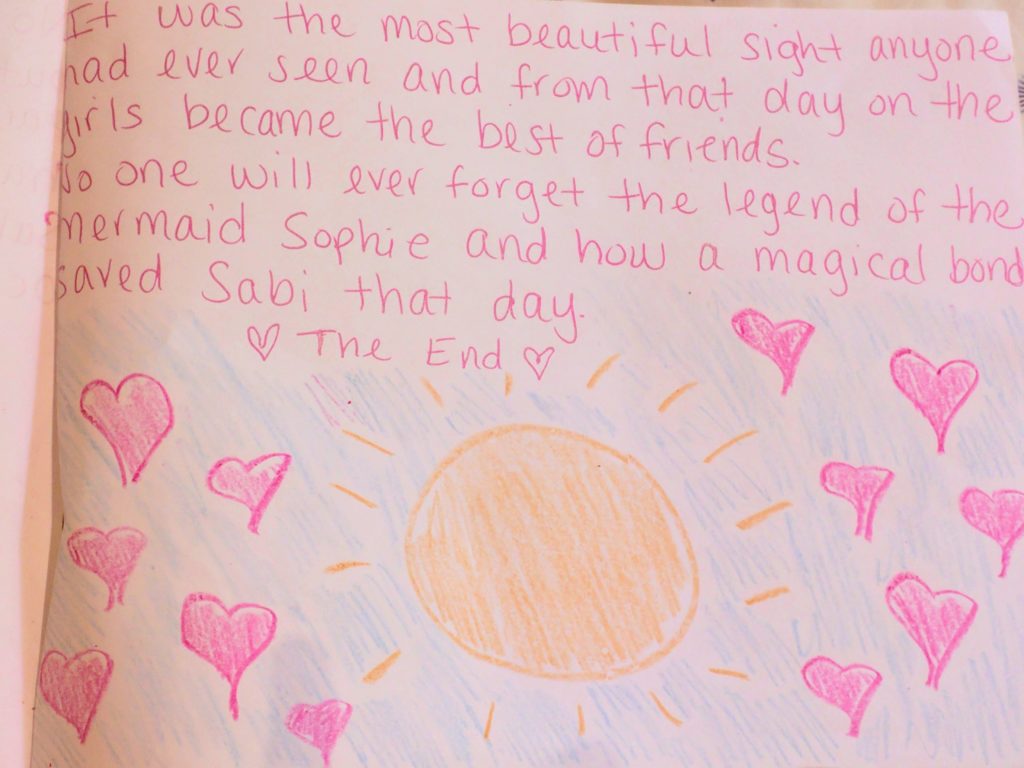 It was the most beautiful sight anyone
had ever seen and from that day on the
girls became the best of friends.
No one will ever forget the legend of the
mermaid Sophie and how a magical bond
saved Sabi that day.
♡ The End ♡